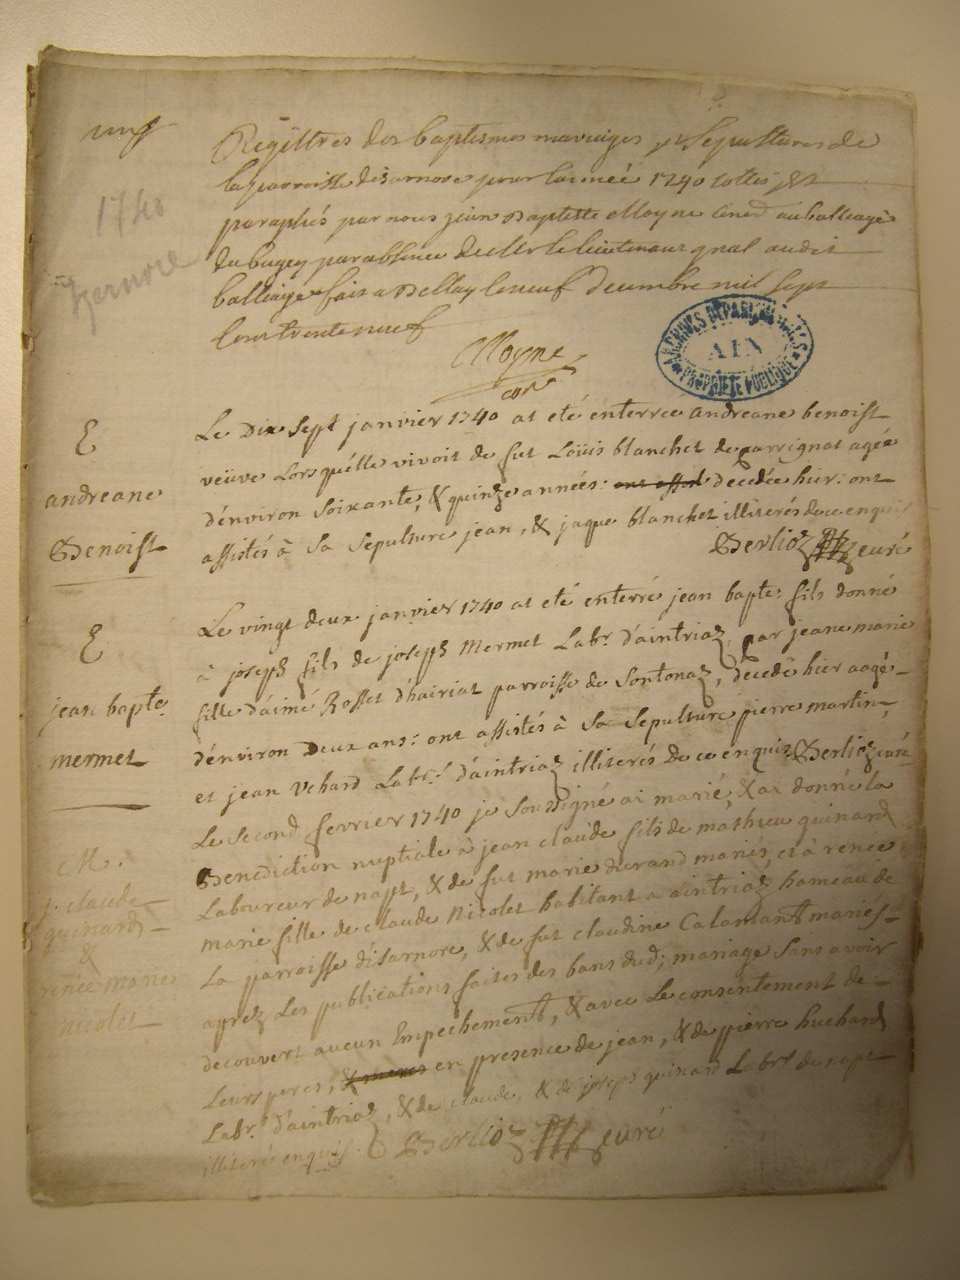 ung
1740
Registres des baptesmes mariages et Sepultures de
la parroisse disarnore pour lannée 1740 cottés et
paraphés par nous jean Baptiste Moyne Coner au balliage
du bugey par absence de Mr le lieutenant gnal audit
balliage fait a Bellay le neuf decembre mil sept
cent trente neuf
Moyne
coner
ARCHIVES DÉPARTEMENTALES
AIN
PROPRIÉTÉ PUBLIQUE
E
andreane
Benoist
Le Dix Sept janvier 1740 at eté enterrée andreane benoist
veüve Lorsqu'élle vivoit de fut Loüis blanchet de parrignat agée
d'énviron soixante, & quinze années: ont assist decedée hier: ont
assistés à Sa Sepulture jean, & jaque blanchet illiterés de ce enquis
Berlioz curé
E
jean bapte.
mermet
Le vingt deux janvier 1740 at eté enterré jean bapte. fils donné
à joseph fils de joseph Mermet Labr. d'aintriaz, par jeane marie
fille d'aimé Rosset d'hairiat parroisse de Sontonaz, decedé hier aagé
d'énviron Deux ans: ont assistés à Sa Sepulture pierre martin,
et jean Vchard Labrs. d'aintriaz illiterés de ce enquis Berlioz curé
M.
j. claude
guinard
&
renée marie
nicolet
Le Second fevrier 1740 je Soussigné ai marié, & ai donné la
Benediction nuptiale à jean claude fils de mathieu guinard
Laboureur de napt, & de fut marie durand mariés, et à renée
marie fille de claude Nicolet habitant a aintriaz hameau de
La parroisse d'isarnore, & de fut claudine Calamant mariés
aprez Les publications faites des bans dud; mariage Sans avoir
decouvert aucun Empechement, & avec Le consentement de
Leurs peres, & meres en presence de jean, & de pierre huchard
Labrs. d'aintriaz, & de claude, & de joseph guinard Labrs. de napt
illiterés enquis. Berlioz curé